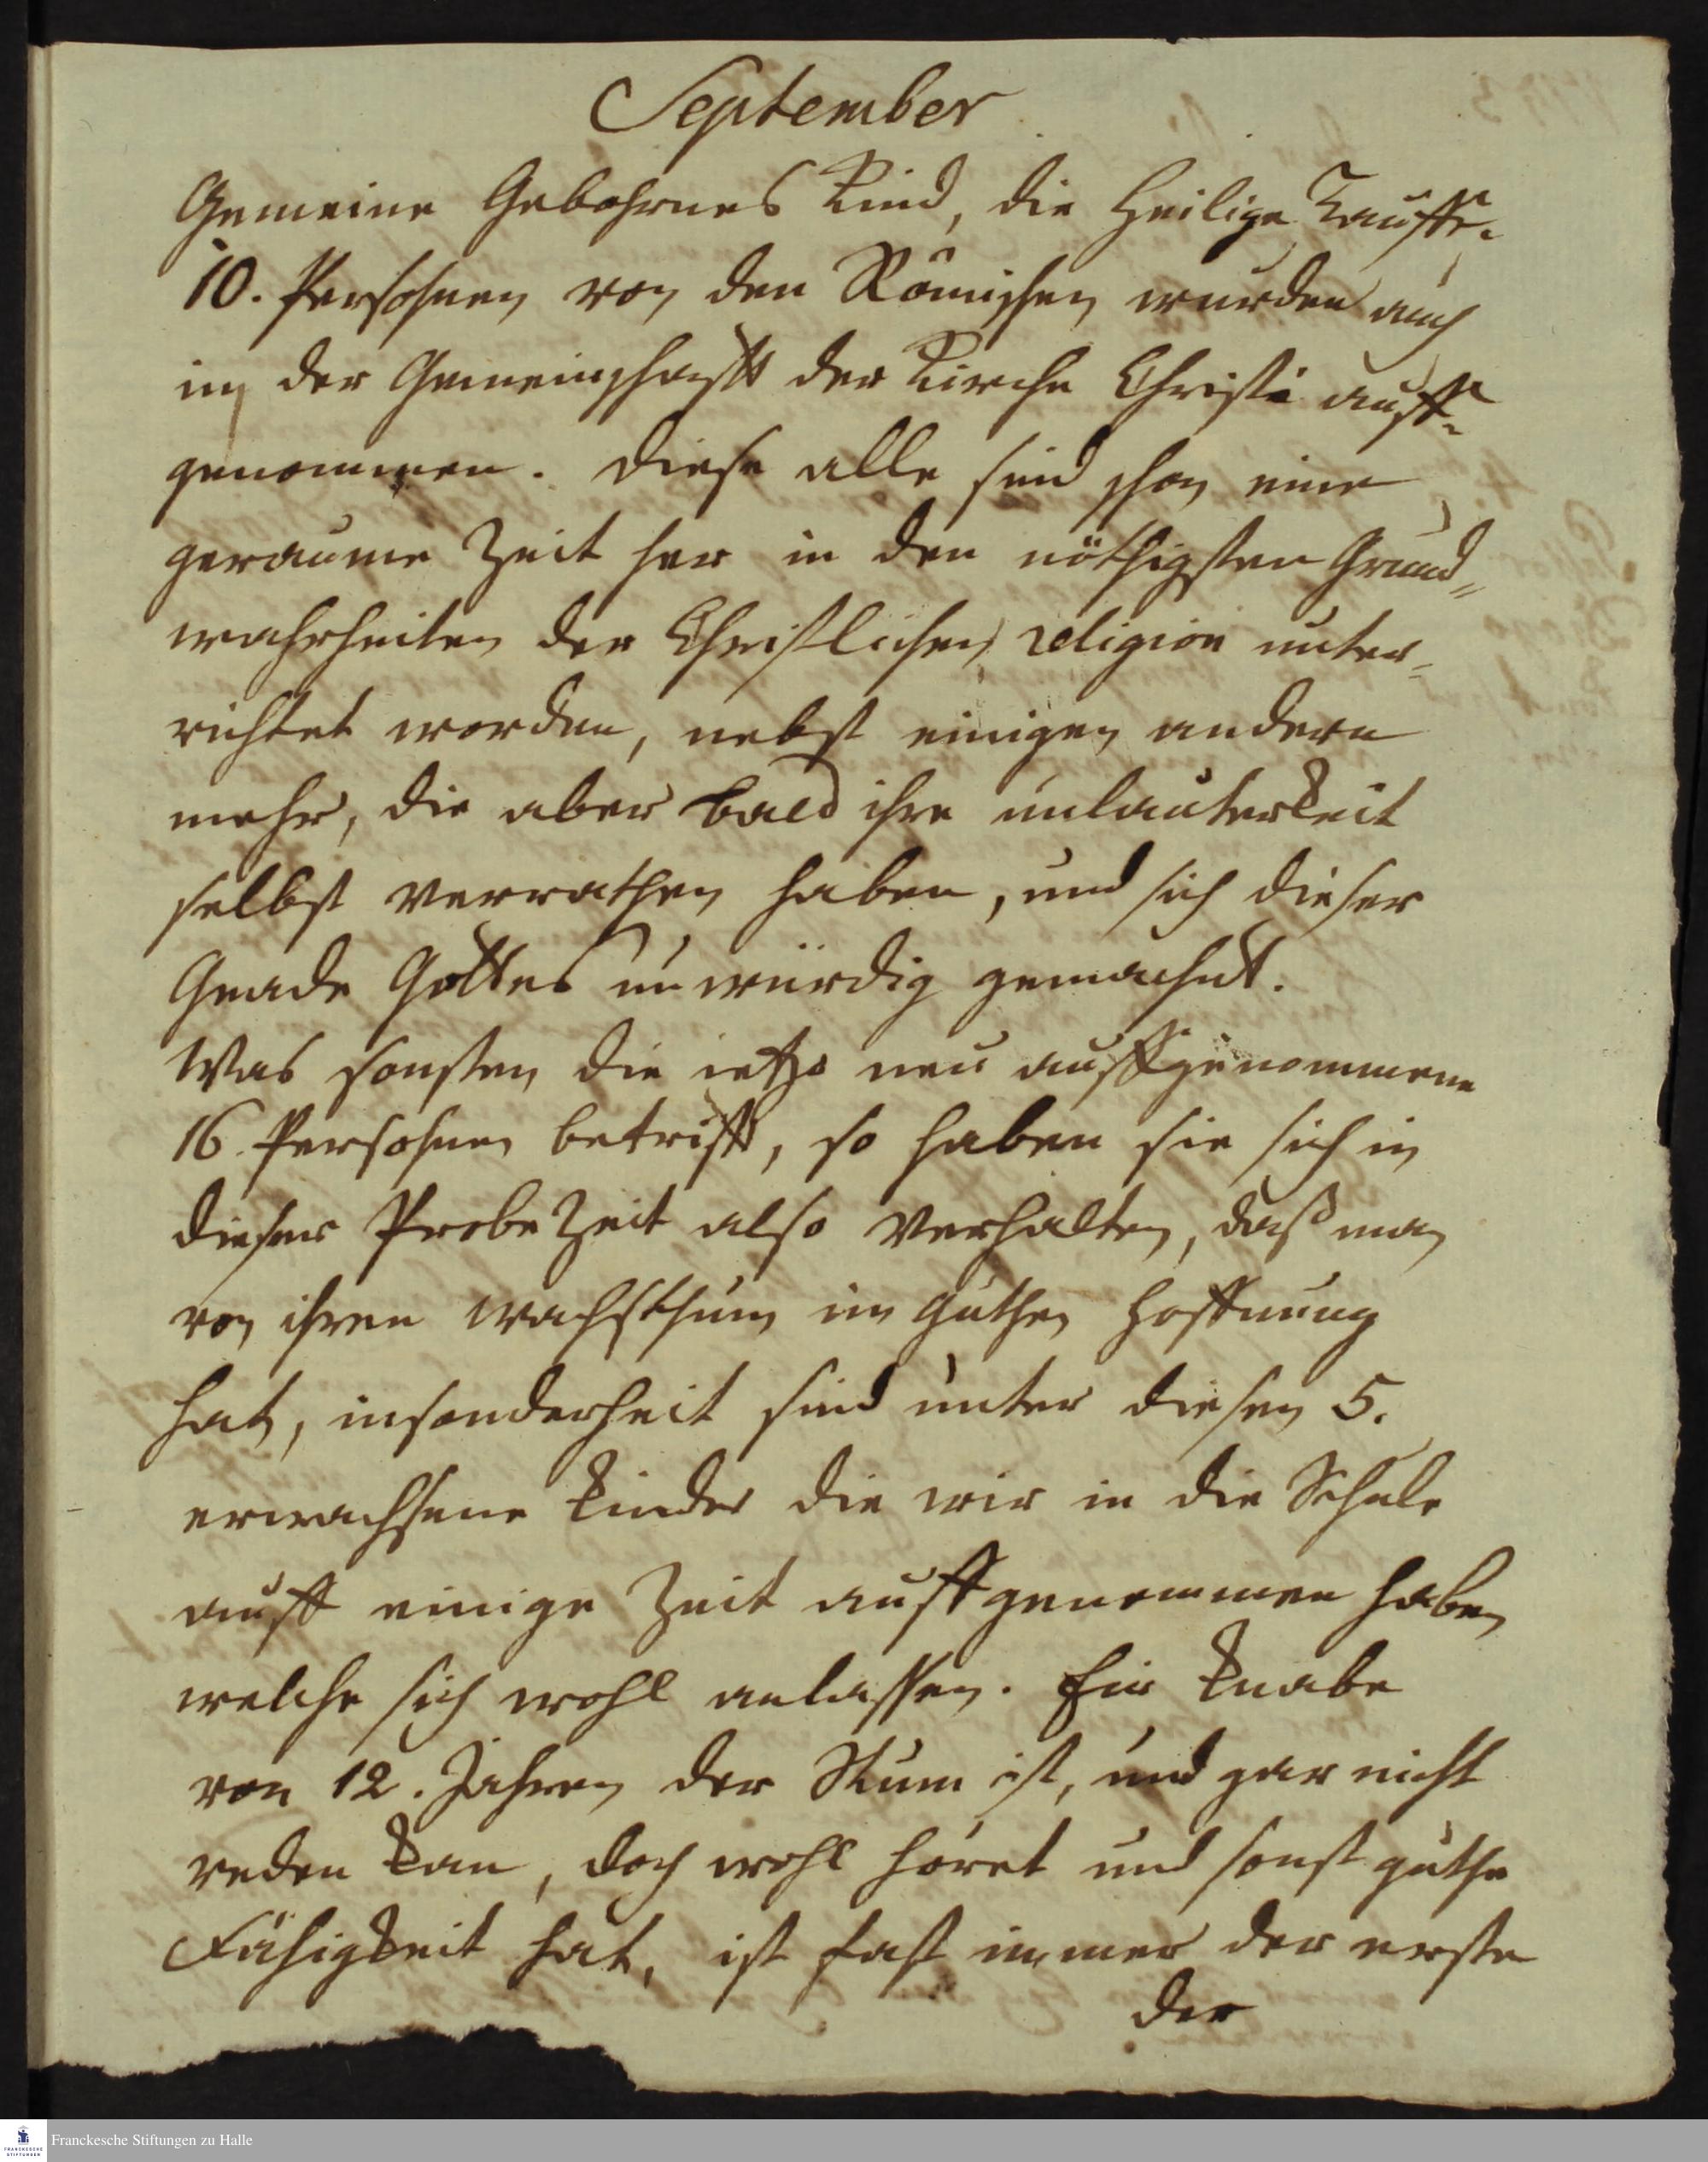 September
Gemeine Gebohrnes Kind, die Heilige Tauffe.
10. Persohnen von den Römischen wurden auch
in der Gemeinschafft der Kirche Christi auff-
genommen. Diese alle sind schon eine
geraume Zeit her in den nöthigsten Grund-
wahrheiten der Christlichen religion unter-
richtet worden, nebst einigen andern
mehr, die aber bald ihre unlauterkeit
selbst verrathen haben, und sich dieser
Gnade Gottes unwürdig gemachet.
Was sonsten die ietzo neu auffgenommene
16 Persohnen betrifft, so haben sie sich in
dieser Probe Zeit also verhalten, daß man
von ihren wachsthum im guthen Hoffnung
hat, insonderheit sind unter diesen 5.
erwachsene Kinder die wir in die Schule
auff einige Zeit auffgenommen haben
welche sich wohl anlassen. Ein Knabe
von 12. Jahren der Stum ist, und gar nicht
reden kan, doch wohl höret und sonst guthe
Fähigkeit hat, ist fast immer der erste
der
Franckesche Stiftungen zu Halle
FRANCKESCHE
STIFTUNGEN